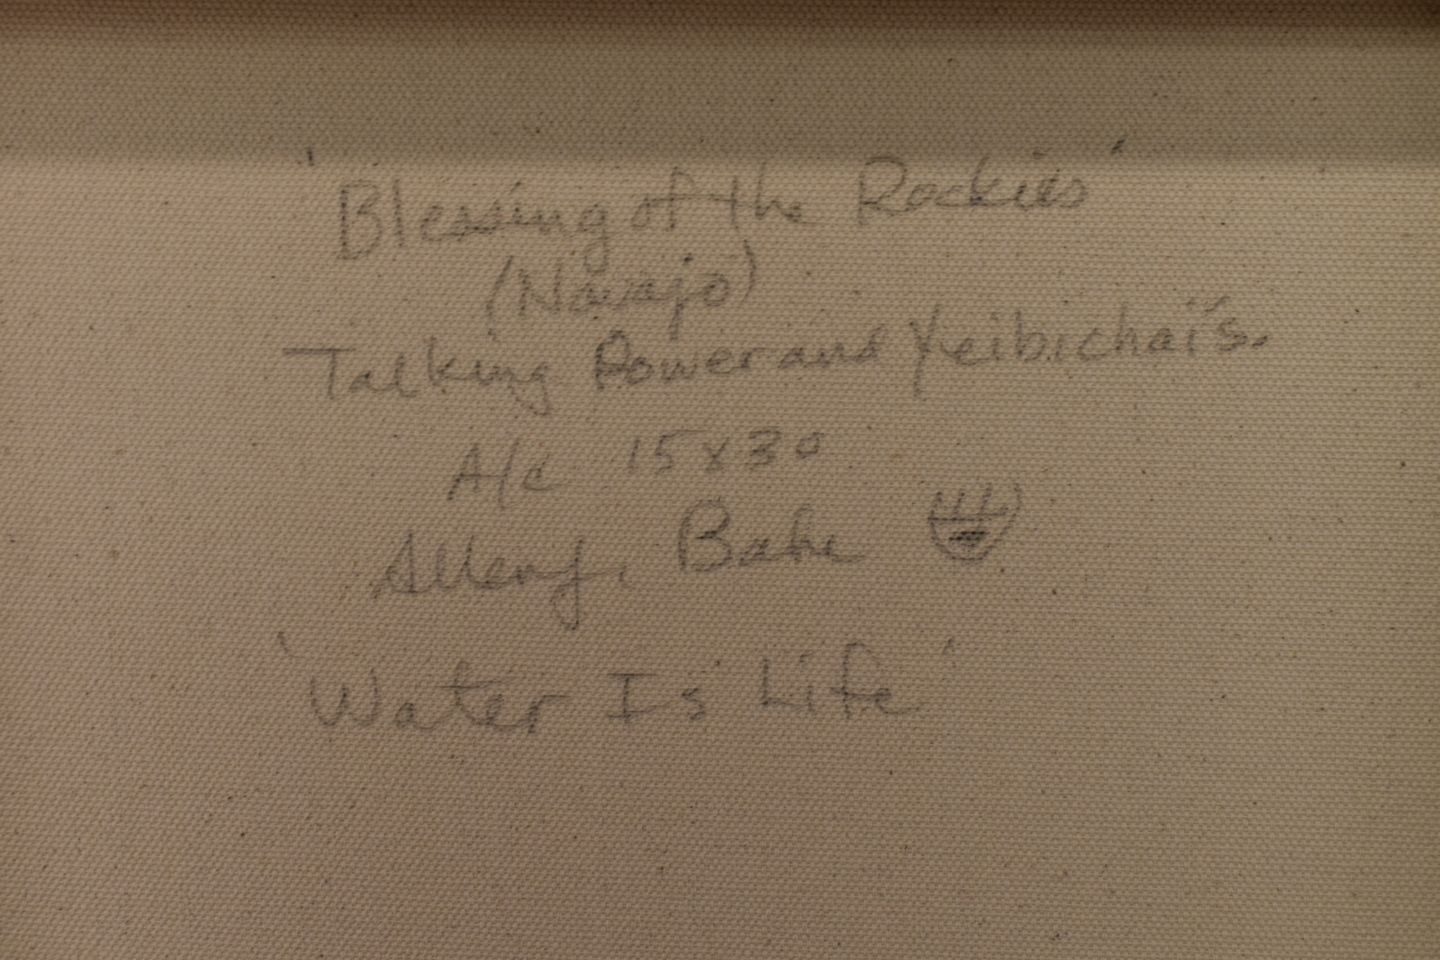 'Blessing of the Rockies'
(Navajo)
Talking Power and Yeibichai's.
A/c 15x30
Bahe
'Water Is Life'